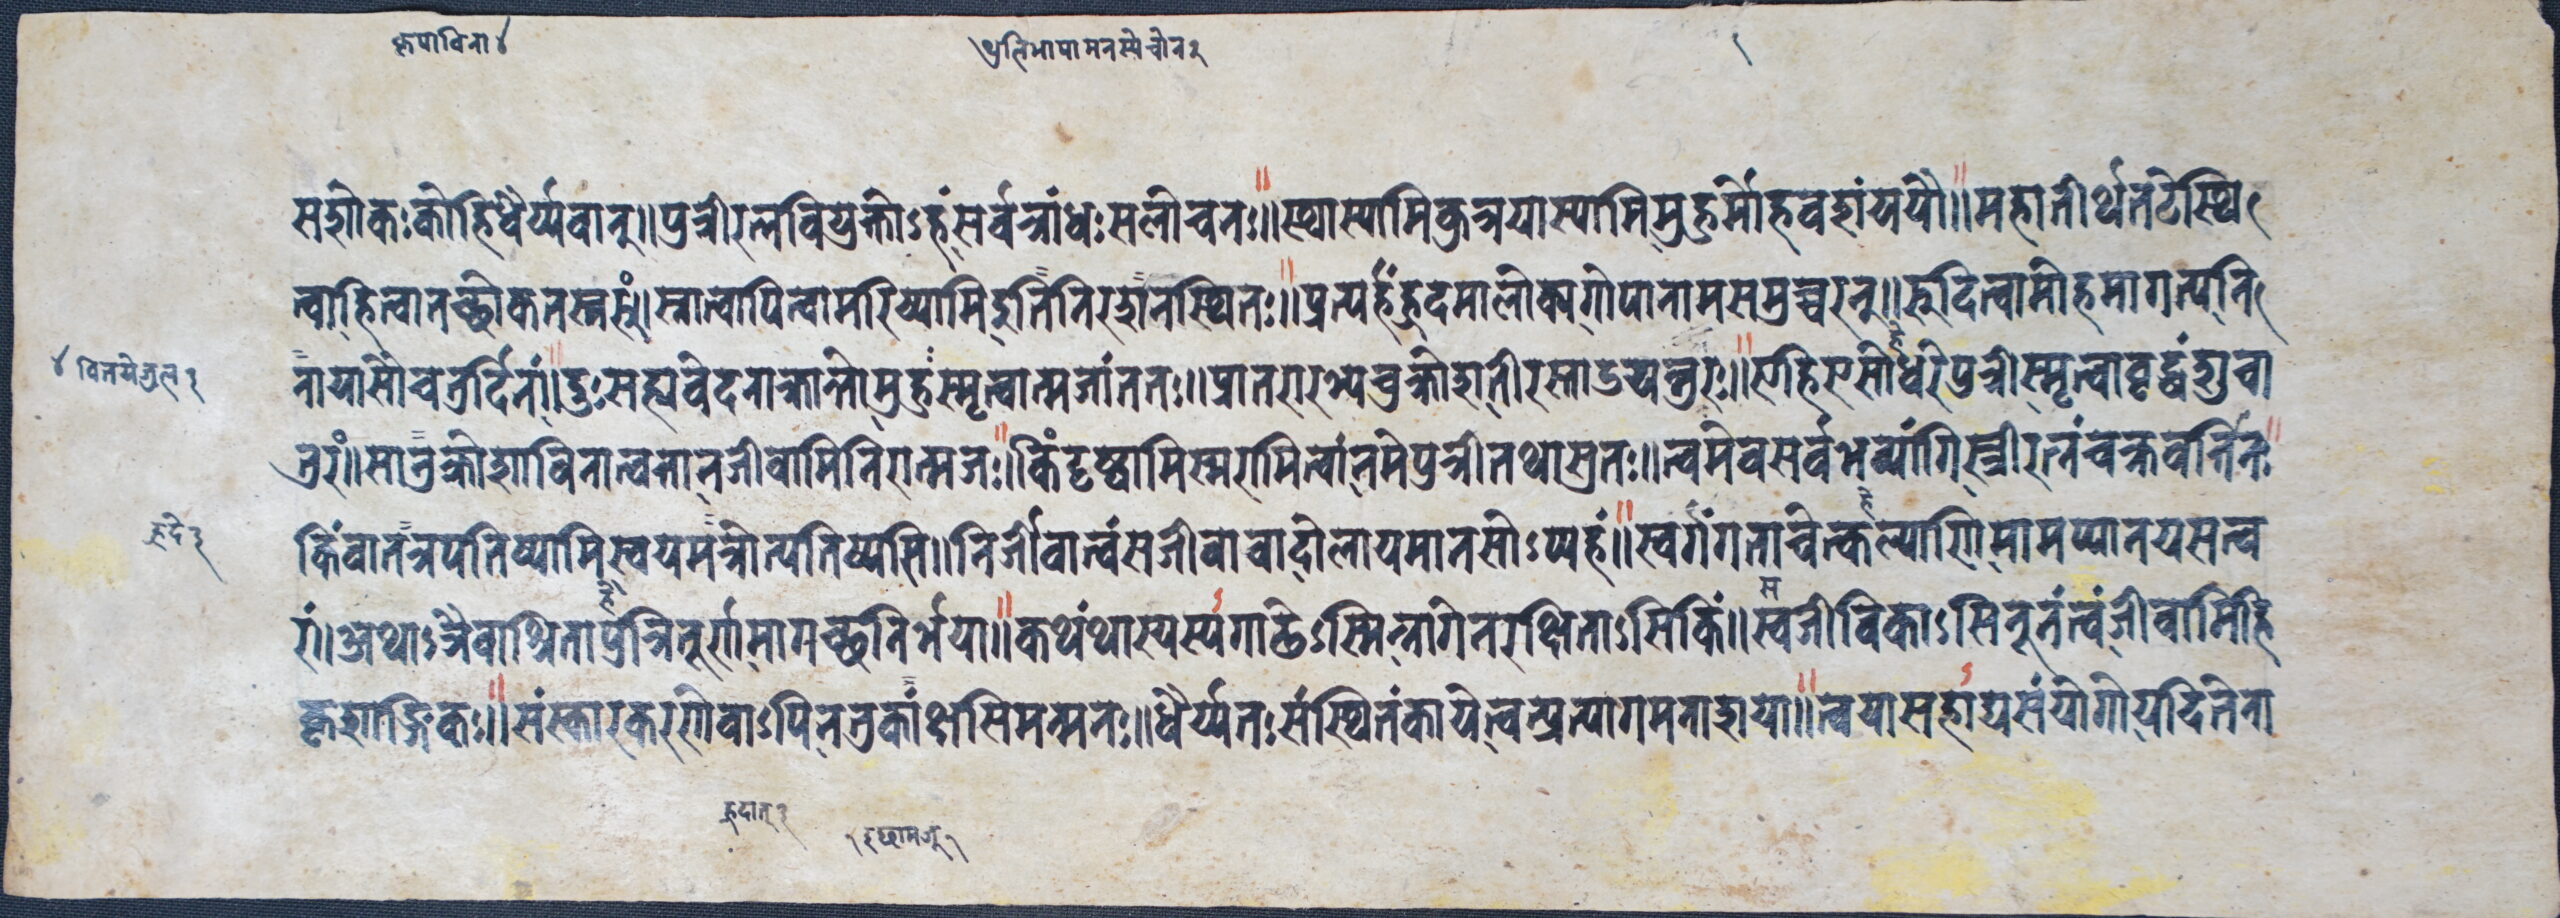 सशोकः कोहिधैर्य्यवान्॥पुत्रीरत्नवियुक्तोऽहंसर्वत्रांधःसलोचनः॥स्थास्यामिकुत्रयास्यामिमुहुर्मोहवशंययौ॥महातीर्थतटेस्थि
त्वाहित्वानच्छोकतस्त्वसुं।स्नात्वापित्वामरिष्यामिदुतिनिरशनस्थितः॥प्रत्यहंहृदमालोक्यगोपानामसमुच्चरन्॥रुदित्वामोहमागत्यनि
नायासौचतुर्दिनं॥दुःसह्यवेदनाक्रान्तोमुहुःस्मृत्वात्मजांततः॥प्रातरारभ्यचुक्रोशतीरस्ताडयन्नुरः॥एहिएसोधरेपुत्रीस्मृत्वावृद्धंशुचा
तुरं॥सातुक्रोशाविनात्वत्तानजीवामिनिरात्मजः॥किंदृष्ट्वामिस्मरामित्वांनमेपुत्रीतथासुतः॥त्वमेवसर्वभव्यांगिस्त्रीरत्नंचक्रवर्तिनः
किंवातत्रपतिष्यामिस्वयमत्रोत्पतिष्यसि॥निर्जीवात्वंसजीवावादोलायमानसोऽप्यहं॥स्वर्गंगताचेत्कल्याणिमामप्यानयसत्व
रं॥अथाऽत्रैवाश्रितापुत्रितूर्णमागच्छनिर्भया॥कथंथास्यस्यगाठेऽस्मिन्नागेनरक्षिताऽसिकिं॥स्वजीविकाऽसिनूनंत्वंजीवामिहि
कृशाङ्गिकः॥संस्कारकरणेवाऽपिनतुकांक्षसिमन्मनः॥धैर्य्यतःसंस्थितंकायेत्वत्प्रत्यागमनाशया॥त्वयासहाद्यसंयोगोयदितेना